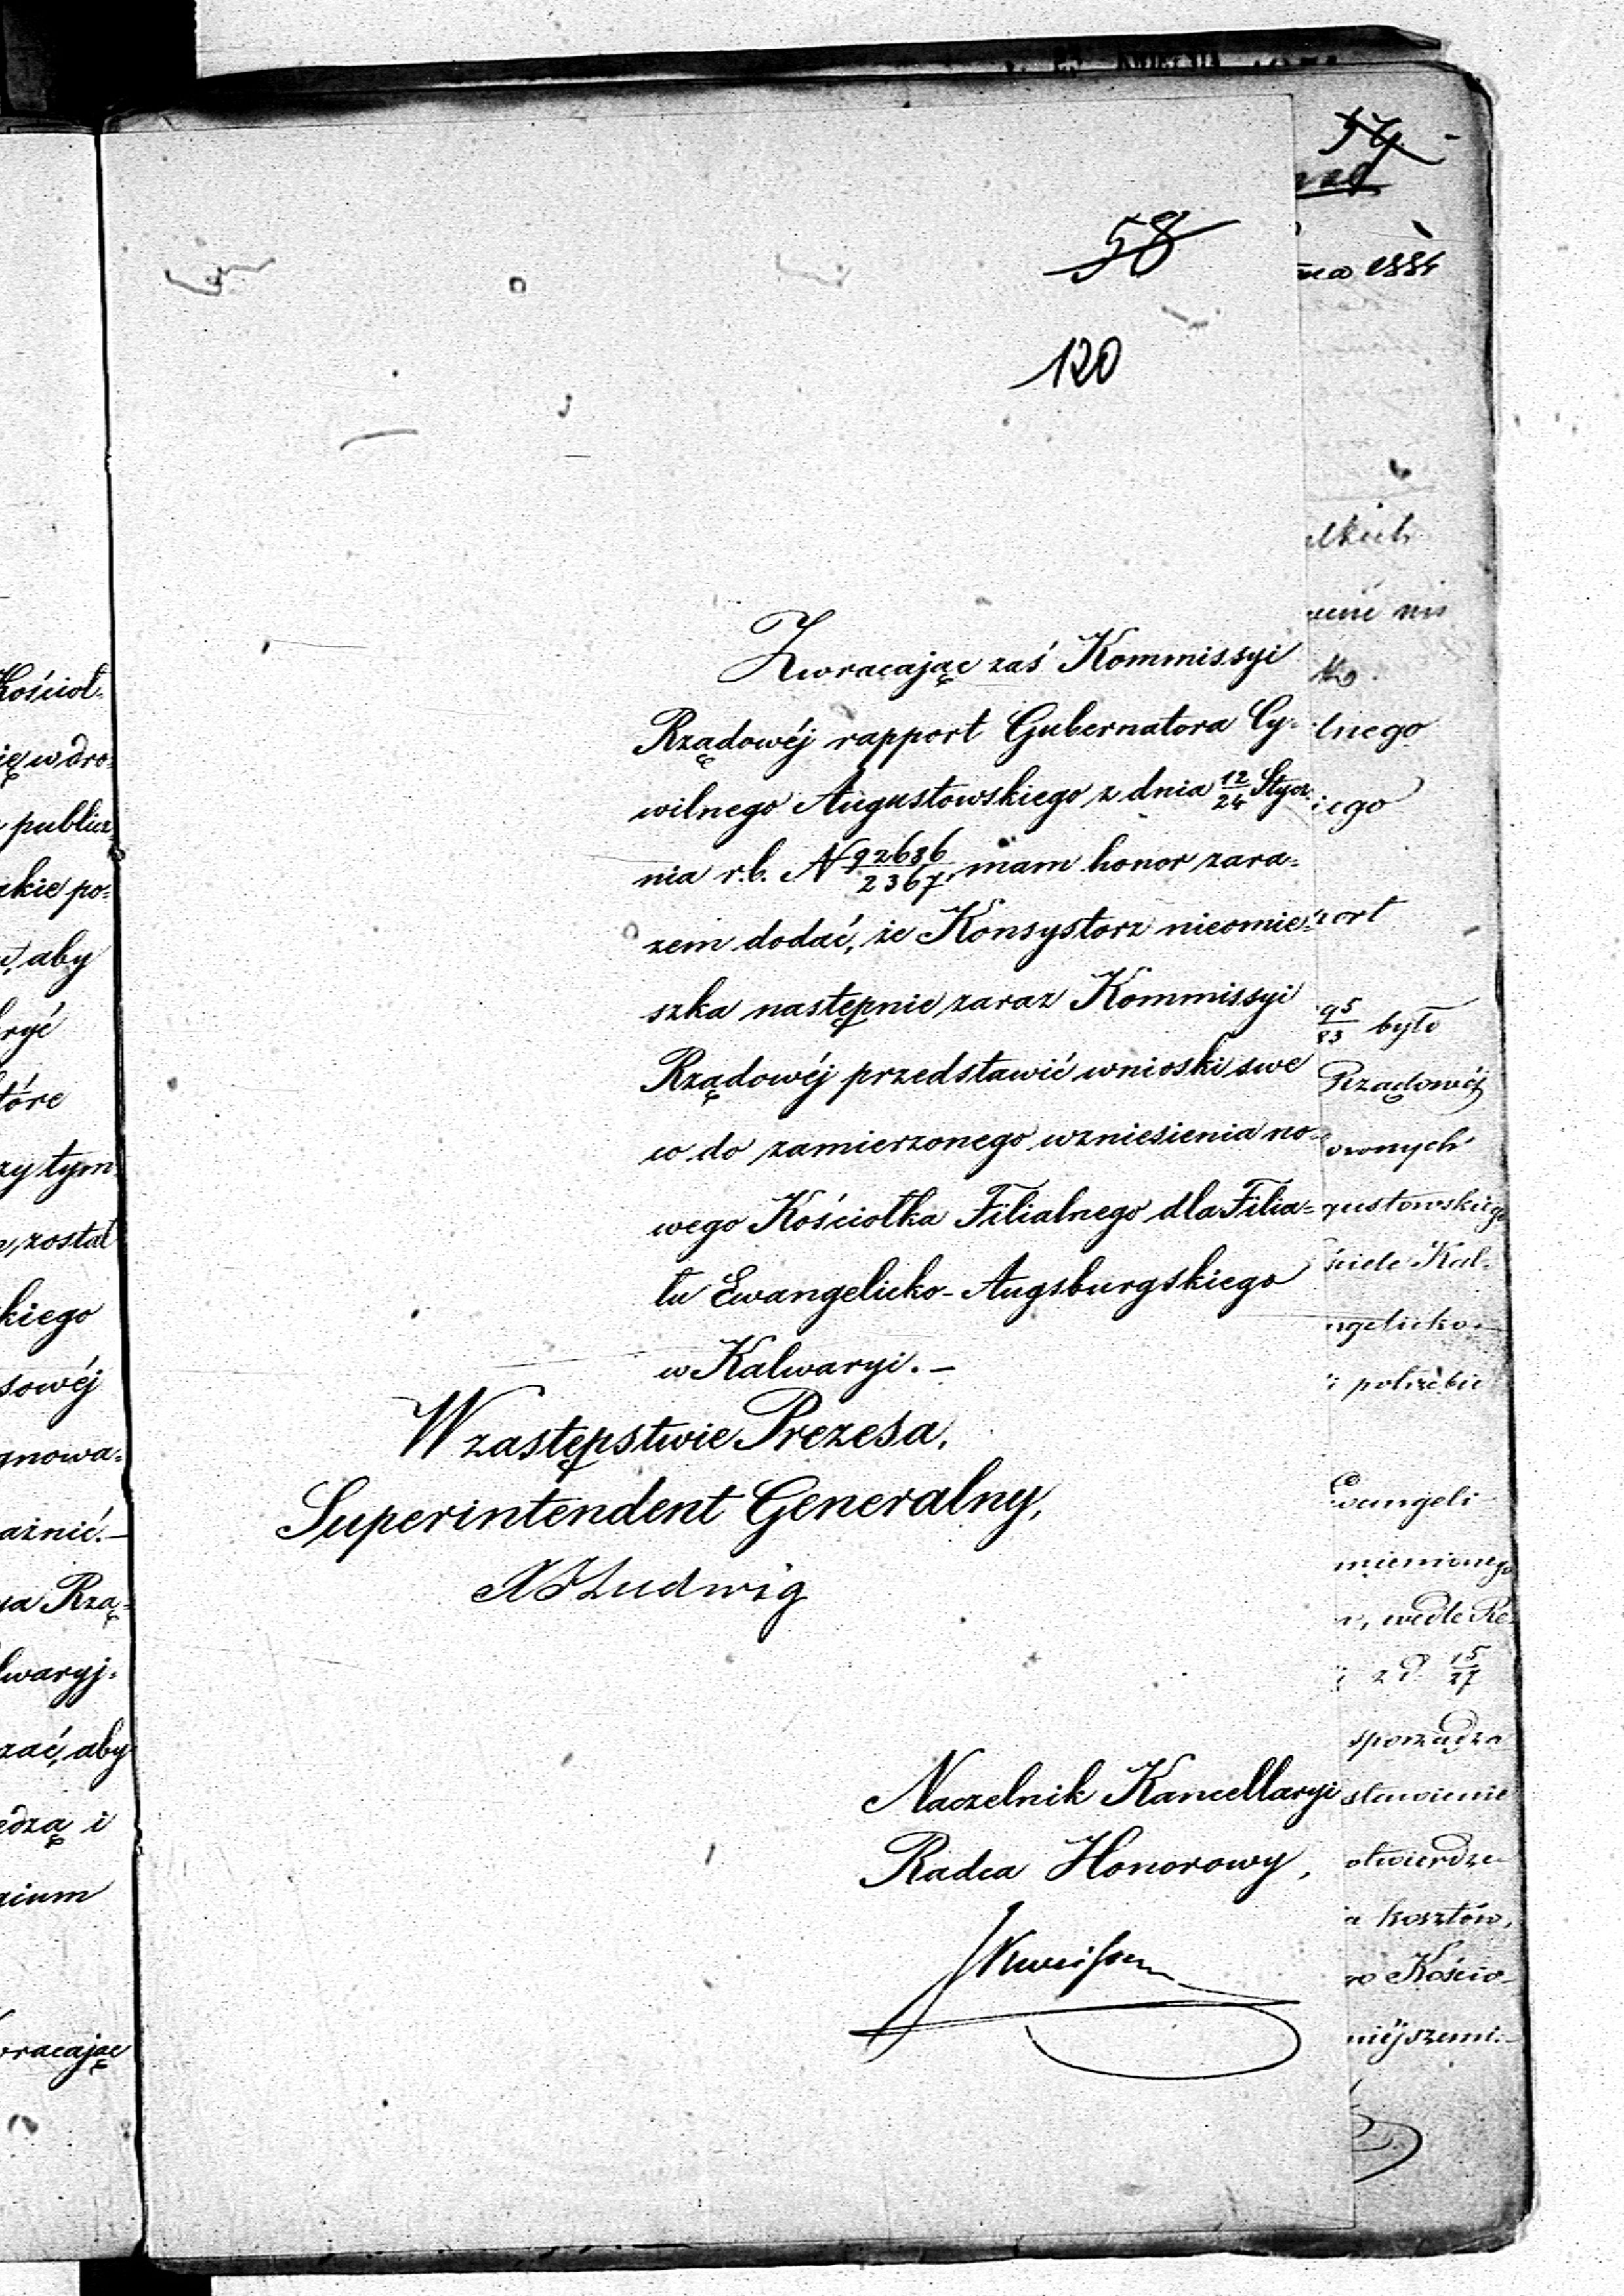 58
120
Zwracając zaś Kommissyi
Rządowéj rapport Gubernatora Cy-
wilnego Augustowskiego z dnia 12/24 Stycz-
nia r.b. N 92686/2367, mam honor zara=
zem dodać, że Konsystorz nieomie=
szka następnie zaraz Kommissyi
Rządowéj przedstawić wnioski swe
co do zamierzonego wzniesienia no-
wego Kościołka Filialnego dla Filia=
łu Ewangelicko-Augsburgskiego
w Kalwaryi.-
W zastępstwie Prezesa,
Superintendent Generalny,
Ludwig
Naczelnik Kancellaryi
Radca Honorowy,
Kościoł-
ię w dro=
publicz=
akie po=
aby
tóre
zy tym
, został
kiego
sowéj
gnowa=
aźnić.-
Rzą=
lwaryj-
zać, aby
edzą i
nium
wracając
1884
lnego
iego
port
95/83 było
Rządowéj
gustowskiego
Kal-
ngelicko-
potrzebie
wangeli-
mienionego
, wedle Re-
z d. 15/27
sporządza
stawienie
otwierdze-
kosztów,
Kościo-
niéjszemi.-